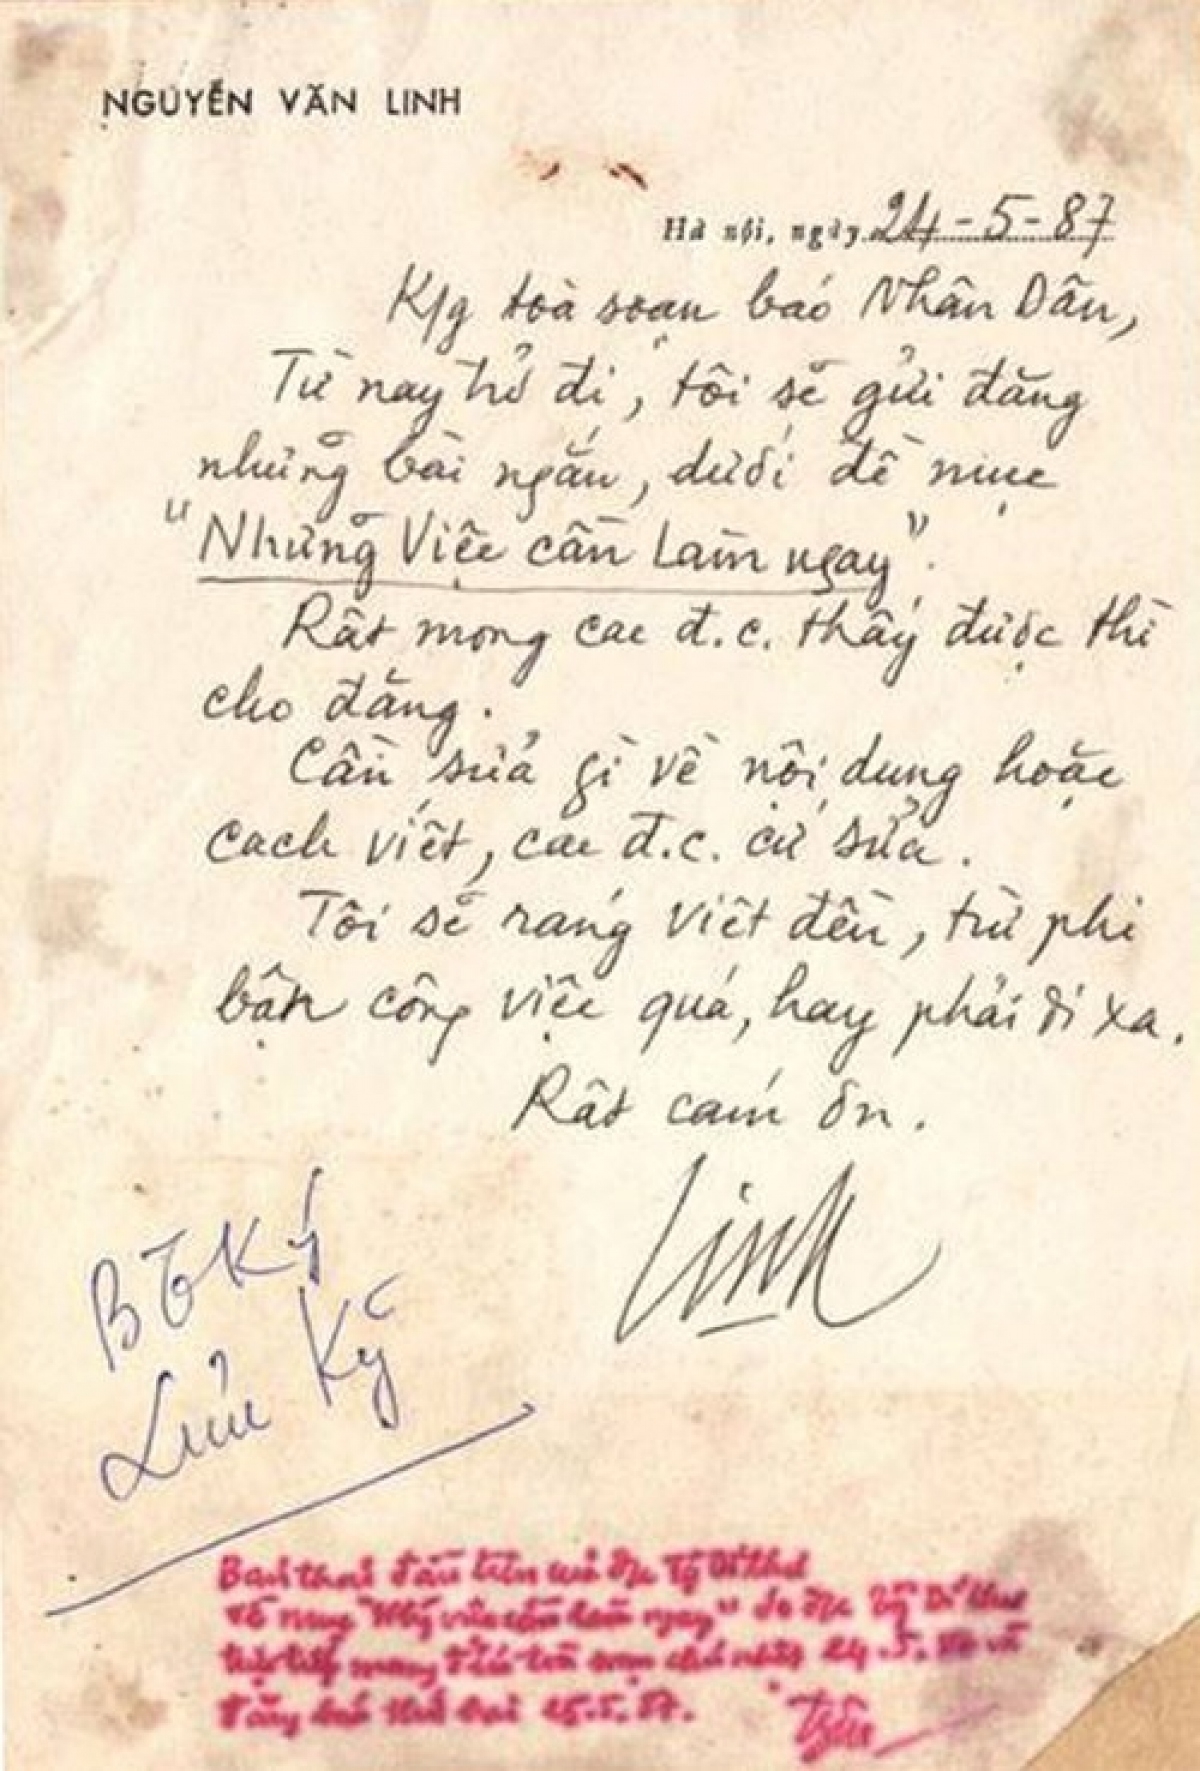 NGUYỄN VĂN LINH
Hà nội, ngày 24-5-87
K/g toà soạn báo Nhân Dân,
Từ nay trở đi, tôi sẽ gửi đăng
những bài ngắn, dưới đề mục
"Những Việc cần Làm ngay".
Rất mong các đ.c. thấy được thì
cho đăng.
Cần sửa gì về nội dung hoặc
cách viết, các đ.c. cứ sửa.
Tôi sẽ ráng viết đều, trừ phi
bận công việc quá, hay phải đi xa.
Rất cám ơn.
Linh
B T Ký
Lưu Kỹ
Bản thảo đầu tiên của đ/c Tổng Bí thư
về mục "Những việc cần làm ngay" do đ/c Tổng Bí thư
trực tiếp mang đến toà soạn chủ nhật 24.5.87 và
đăng báo thứ hai 25.5.87.